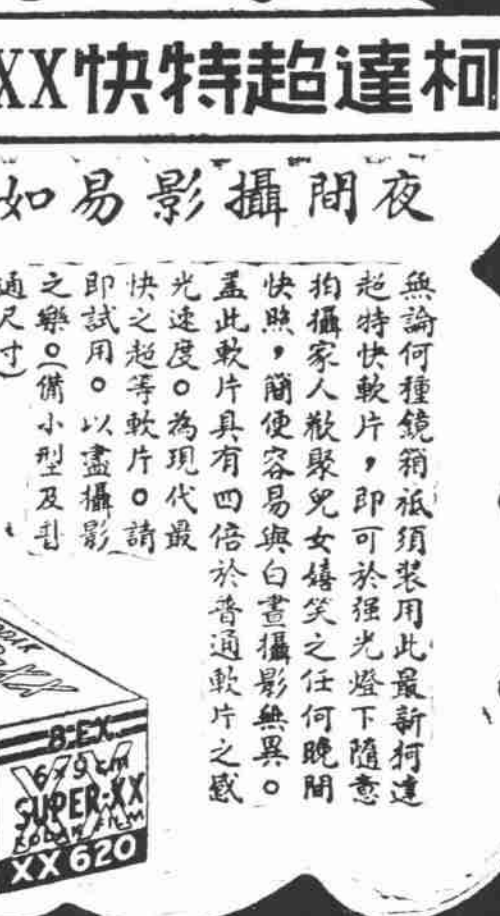 柯達超特快XX
夜間攝影易如
無論何種鏡箱祇須裝用此最新柯達
超特快軟片，即可於强光燈下隨意
拍攝家人歡聚兒女嬉笑之任何晚間
快照，簡便容易與白晝攝影無異。
蓋此軟片具有四倍於普通軟片之感
光速度。為現代最
快之超等軟片。請
即試用。以盡攝影
之樂。（備小型及
通尺寸）
8-EX.
6x9 cm
SUPER-XX
KODAK FILM
XX620